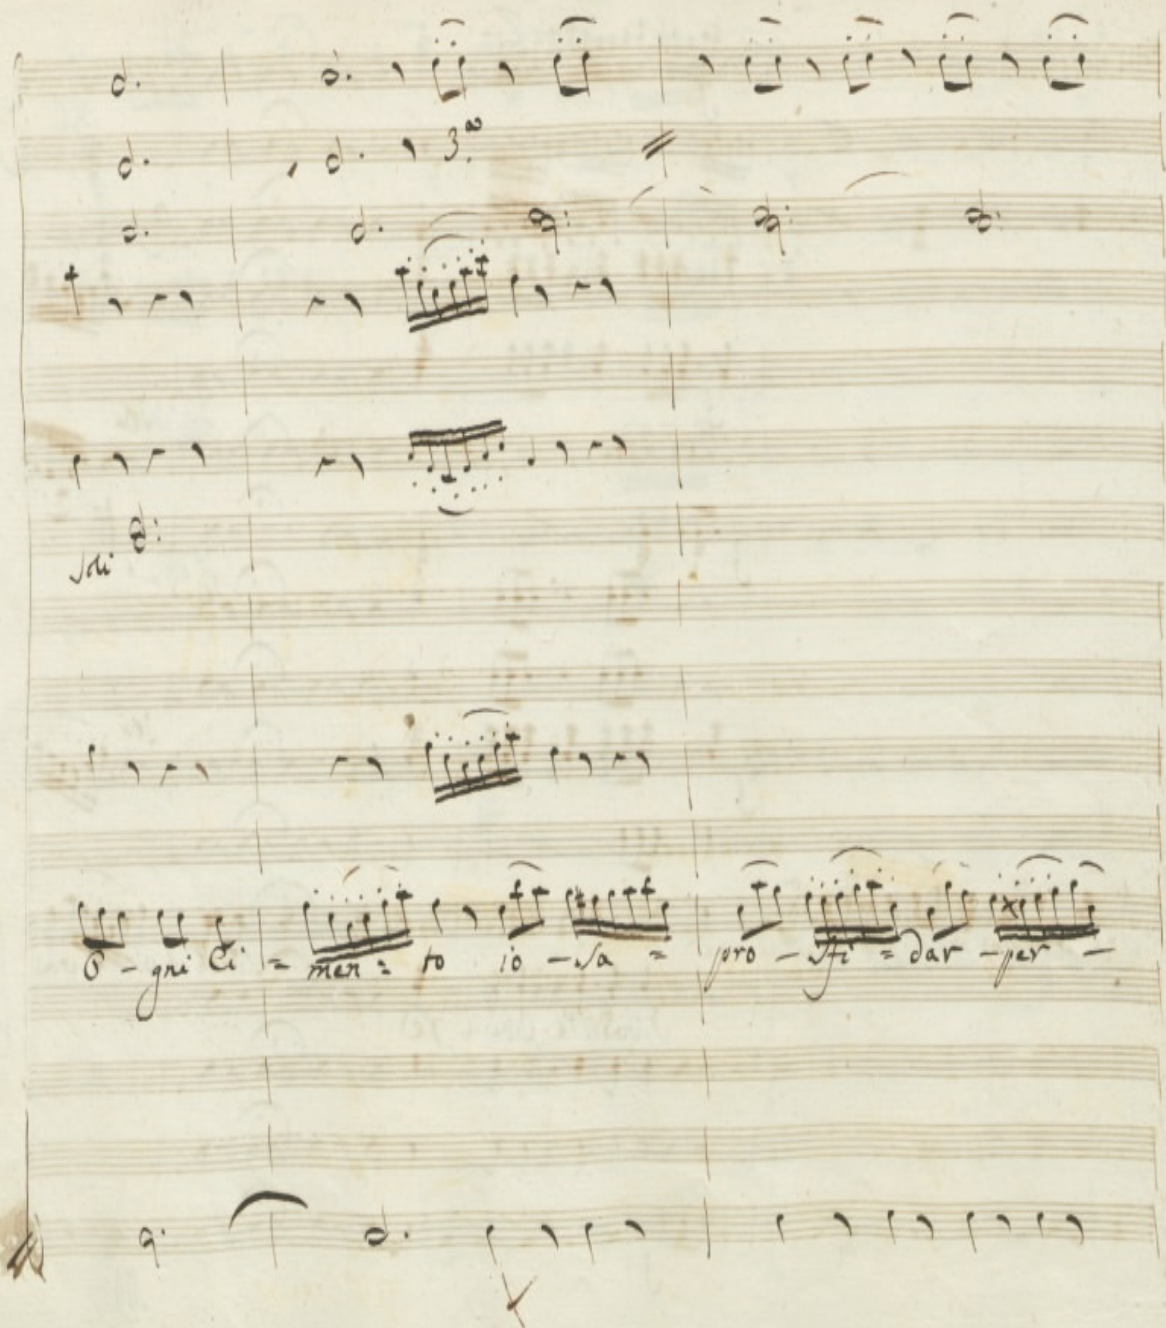 3.ª
Soli
O - gni Ci = men = to io - sa = pro - sfi = dar - per -